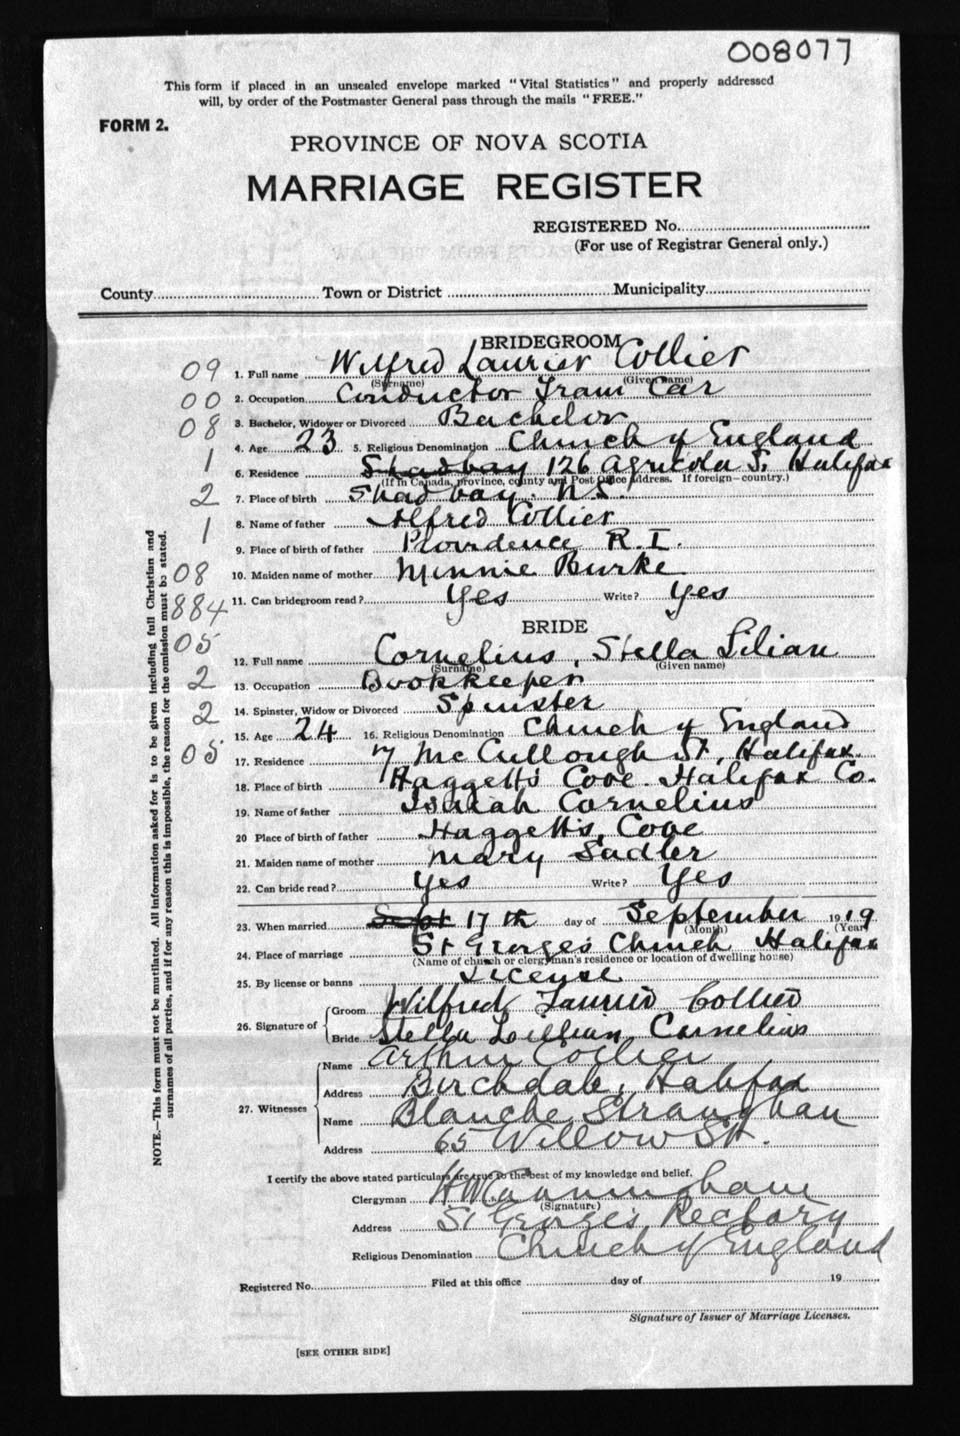 008077
This form if placed in an unsealed envelope marked "Vital Statistics" and properly addressed
will, by order of the Postmaster General pass through the mails "FREE."
FORM 2.
PROVINCE OF NOVA SCOTIA
MARRIAGE REGISTER
REGISTERED No.
(For use of Registrar General only.)
County Town or District Municipality
BRIDEGROOM
09 1. Full name Wilfred Laurier Collier
(Surname) (Given name)
00 2. Occupation Conductor Tram Car
08 3. Bachelor, Widower or Divorced Bachelor
4. Age 23 5. Religious Denomination Church of England
1 6. Residence Shadbay 126 Agricola St Halifax
(If in Canada, province, county and Post Office address. If foreign—country.)
2 7. Place of birth Shad bay. N.S.
1 8. Name of father Alfred Collier
9. Place of birth of father Providence R.I.
08 10. Maiden name of mother Minnie Burke
884 11. Can bridegroom read? Yes Write? Yes
BRIDE
05 12. Full name Cornelius, Stella Lilian
(Surname) (Given name)
2 13. Occupation Bookkeeper
2 14. Spinster, Widow or Divorced Spinster
15. Age 24 16. Religious Denomination Church of England
05 17. Residence 7 McCullough St, Halifax.
18. Place of birth Haggett's Cove Halifax Co.
19. Name of father Isaiah Cornelius
20 Place of birth of father Haggett's Cove
21. Maiden name of mother Mary Sadler
22. Can bride read? Yes Write? Yes
23. When married Sept 17th day of September 1919
(Month) (Year)
24. Place of marriage St Georges Church Halifax
(Name of church or clergyman's residence or location of dwelling house)
25. By license or banns License
26. Signature of Groom Wilfred Laurier Collier
Bride Stella Lillian Cornelius
27. Witnesses Name Arthur Collier
Address Birchdale, Halifax
Name Blanche Straughan
Address 65 Willow St.
I certify the above stated particulars are true to the best of my knowledge and belief.
Clergyman H W Cunningham
(Signature)
Address St Georges Rectory
Religious Denomination Church of England
Registered No. Filed at this office day of 19
Signature of Issuer of Marriage Licenses.
[SEE OTHER SIDE]
NOTE.—This form must not be mutilated. All information asked for is to be given including full Christian and
surnames of all parties, and if for any reason this is impossible, the reason for the omission must be stated.